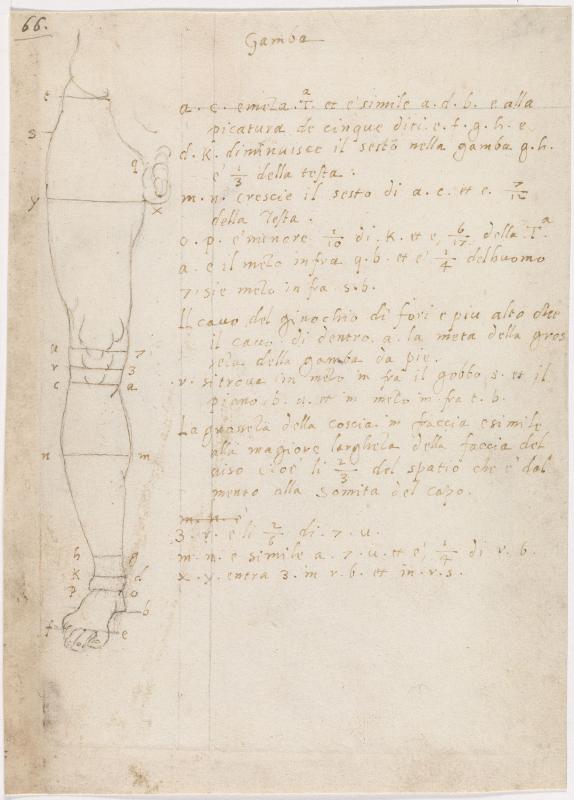 66.
Gamba
a. c. e meta. T.ª et e simile a. d. b. e alla
picatura de cinque diti. e. f. g. h. e
d. K. diminuisce il sesto nella gamba g. h.
e 1/3 della testa.
m. n. crescie il sesto di a. c. et e. 7/12
della Testa.
o. p. e menore 1/10 di. K. et e, 6/17 della. T.ª
a. e il mezo infra q. b. et e 1/4 delhuomo
7. sie mezo in fra. s. b.
Il cavo del ginochio di fori e piu alto che
il cavo di dentro. a. la meta della gros
seza della gamba da pie.
r. si trova in mezo in fra il gobbo s. et il
piano. b. u. et in mezo in fra t. b.
La grosseza della coscia in faccia e simile
alla magiore largheza della faccia del
uiso cioe li 2/3 del spatio che e dal
mento alla somita del capo.
m. n. e
3. r. e li 2/6 di. 7. u.
m. n. e simile a. 7. u. et e, 1/4 di r. b.
x. y. entra 3. in r. b. et in. r. s.
t
s
q
y
x
u 7
r 3
c a
n m
h g
K d
p o
b
f e